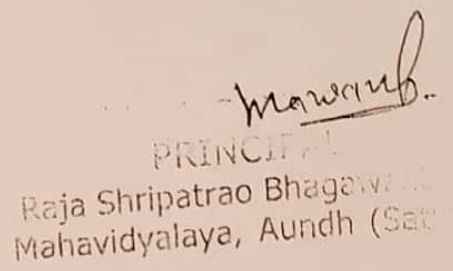 PRINCIPAL
Raja Shripatrao Bhagaw
Mahavidyalaya, Aundh (Sat